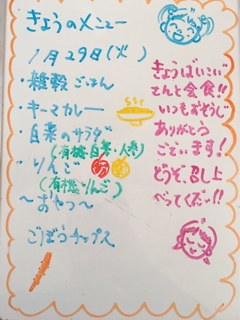 きょうのメニュー
1月29日(火)
・雑穀ごはん
・キーマカレー
・白菜のサラダ
(有機・白菜・人参)
・りんご
(有機りんご)
〜おやつ〜
ごぼうチップス
きょうは
てんと会食!!
いつもおそうじ
ありがとう
ございます!
どうぞ召し上
がってくださ〜い!!